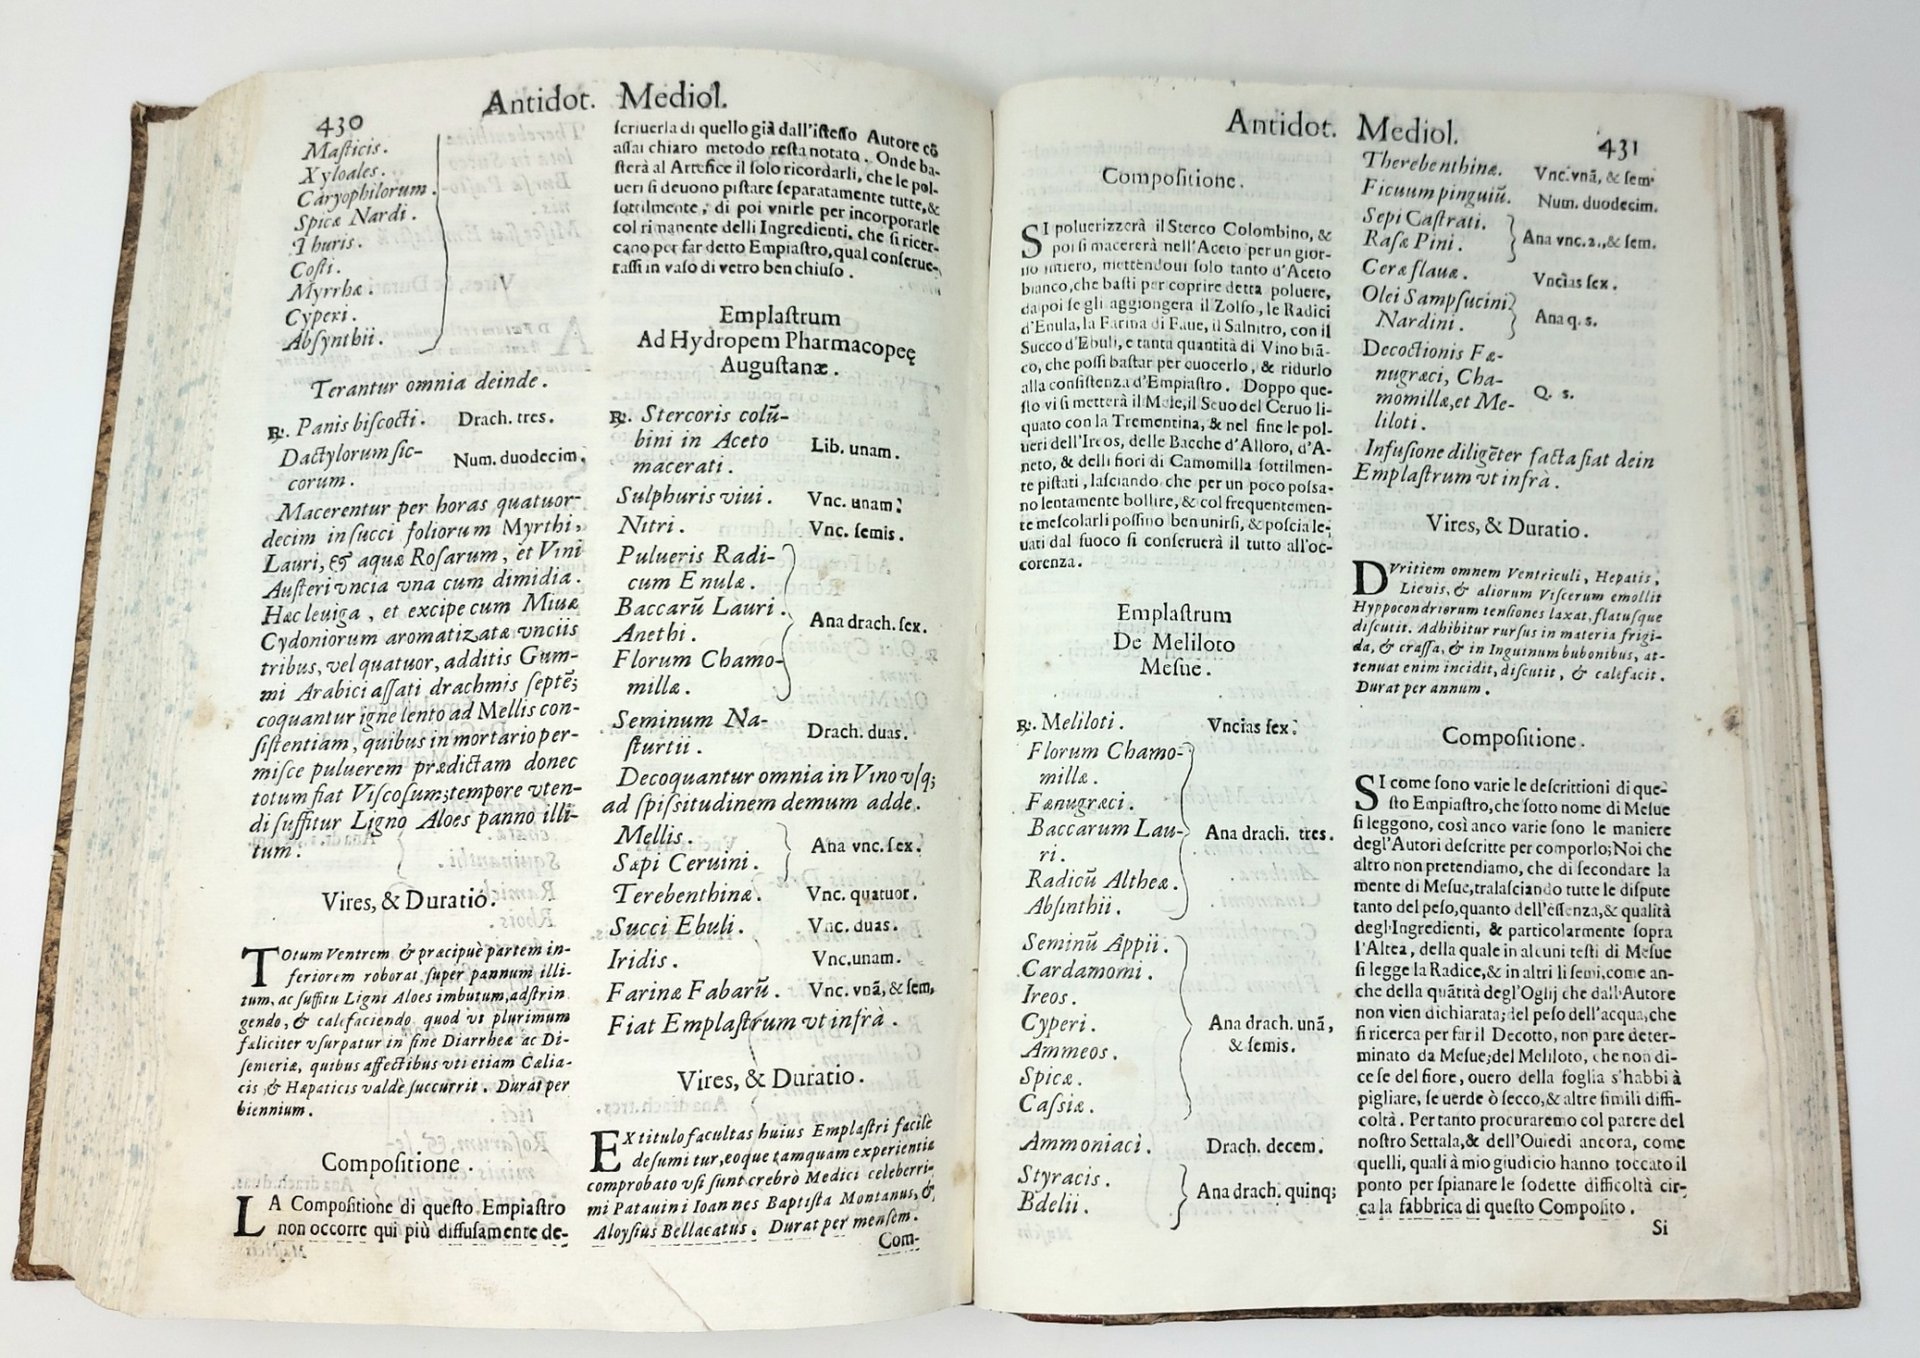 430
Antidot. Mediol.
Masticis.
Xyloales.
Caryophilorum.
Spicæ Nardi.
Thuris.
Costi.
Myrrhæ.
Cyperi.
Absynthii.
Terantur omnia deinde.
℞. Panis biscocti. Drach. tres.
Dactylorum sic- Num. duodecim.
corum.
Macerentur per horas quatuor-
decim in succi foliorum Myrthi,
Lauri, & aquæ Rosarum, et Vini
Austeri vncia vna cum dimidia.
Hæc leuiga, et excipe cum Miuæ
Cydoniorum aromatizatæ vnciis
tribus, vel quatuor, additis Gum-
mi Arabici assati drachmis septē;
coquantur igne lento ad Mellis con-
sistentiam, quibus in mortario per-
misce puluerem prædictam donec
totum fiat Viscosum; tempore vten-
di suffitur Ligno Aloes panno illi-
tum.
Vires, & Duratio.
TOtum Ventrem & præcipuè partem in-
feriorem roborat super pannum illi-
tum, ac suffitu Ligni Aloes imbutum, adstrin
gendo, & calefaciendo quod vt plurimum
fæliciter vsurpatur in fine Diarrheæ ac Di-
senteriæ, quibus affectibus vti etiam Cælia-
cis & Hæpaticis valdè succurrit. Durat per
biennium.
Compositione.
LA Compositione di questo Empiastro
non occorre qui più diffusamente de-
scriuerla di quello già dall'istesso Autore cō
assai chiaro metodo resta notato. Onde ba-
sterà al Artefice il solo ricordarli, che le pol-
ueri si deuono pistare separatamente tutte, &
sottilmente, di poi vnirle per incorporarle
col rimanente delli Ingredienti, che si ricer-
cano per far detto Empiastro, qual conserue-
rassi in vaso di vetro ben chiuso.
Emplastrum
Ad Hydropem Pharmacopeę
Augustanæ.
℞. Stercoris colū-
bini in Aceto Lib. unam.
macerati.
Sulphuris viui. Vnc. unam:
Nitri. Vnc. semis.
Pulueris Radi-
cum Enulæ.
Baccarū Lauri. Ana drach. sex.
Anethi.
Florum Chamo-
millæ.
Seminum Na- Drach. duas.
sturtii.
Decoquantur omnia in Vino vsq;
ad spissitudinem demum adde.
Mellis. Ana vnc. sex.
Sæpi Ceruini.
Terebenthinæ. Vnc. quatuor.
Succi Ebuli. Vnc. duas.
Iridis. Vnc. unam.
Farinæ Fabarū. Vnc. vnā, & sem,
Fiat Emplastrum vt infrà.
Vires, & Duratio.
EX titulo facultas huius Emplastri facilè
desumitur, eoque tamquam experientia
comprobato vsi sunt crebrò Medici celeberri-
mi Patauini Ioannes Baptista Montanus, &
Aloysius Bellacatus. Durat per mensem.
Com-
Antidot. Mediol.
431
Compositione.
SI poluerizzerà il Sterco Colombino, &
poi si macererà nell'Aceto per un gior-
no intiero, mettendoui solo tanto d'Aceto
bianco, che basti per coprire detta poluere,
da poi se gli aggiongerà il Zolfo, le Radici
d'Enula, la Farina di Faue, il Salnitro, con il
Succo d'Ebuli, e tanta quantità di Vino biā-
co, che possi bastar per cuocerlo, & ridurlo
alla consistenza d'Empiastro. Doppo que-
sto vi si metterà il Mele, il Seuo del Ceruo li-
quato con la Trementina, & nel fine le pol-
ueri dell'Ireos, delle Bacche d'Alloro, d'A-
neto, & delli fiori di Camomilla sottilmen-
te pistati, lasciando che per un poco possa-
no lentamente bollire, & col frequentemen-
te mescolarli possino ben unirsi, & poscia le-
uati dal fuoco si conseruerà il tutto all'oc-
corenza.
Emplastrum
De Meliloto
Mesue.
℞. Meliloti. Vncias sex:
Florum Chamo-
millæ.
Fænugræci.
Baccarum Lau- Ana drach. tres.
ri.
Radicū Altheæ.
Absinthii.
Seminū Appii.
Cardamomi.
Ireos.
Cyperi. Ana drach. unā,
Ammeos. & semis.
Spicæ.
Cassiæ.
Ammoniaci Drach. decem.
Styracis. Ana drach. quinq;
Bdelii.
Therebenthinæ. Vnc. vnā, & sem.
Ficuum pinguiū. Num. duodecim.
Sepi Castrati. Ana vnc. 2., & sem.
Rasæ Pini.
Ceræ flauæ. Vncias sex.
Olei Sampsucini Ana q. s.
Nardini.
Decoctionis Fæ-
nugræci, Cha-
momillæ, et Me- Q. s.
liloti.
Infusione diligēter facta fiat dein
Emplastrum vt infrà.
Vires, & Duratio.
DVritiem omnem Ventriculi, Hepatis,
Lienis, & aliorum Viscerum emollit
Hyppocondriorum tensiones laxat, flatusque
discutit. Adhibitur rursus in materia frigi-
da, & crassa, & in Inguinum bubonibus, at-
tenuat enim incidit, discutit, & calefacit.
Durat per annum.
Compositione.
SI come sono varie le descrittioni di que-
sto Empiastro, che sotto nome di Mesue
si leggono, così anco varie sono le maniere
degl'Autori descritte per comporlo; Noi che
altro non pretendiamo, che di secondare la
mente di Mesue, tralasciando tutte le dispute
tanto del peso, quanto dell'essenza, & qualità
degl'Ingredienti, & particolarmente sopra
l'Altea, della quale in alcuni testi di Mesue
si legge la Radice, & in altri li semi, come an-
che della quātità degl'Oglij che dall'Autore
non vien dichiarata; del peso dell'acqua, che
si ricerca per far il Decotto, non pare deter-
minato da Mesue; del Meliloto, che non di-
ce se del fiore, ouero della foglia s'habbi à
pigliare, se verde ò secco, & altre simili diffi-
coltà. Per tanto procuraremo col parere del
nostro Settala, & dell'Ouiedi ancora, come
quelli, quali à mio giudicio hanno toccato il
ponto per spianare le sodette difficoltà cir-
ca la fabbrica di questo Composito.
Si